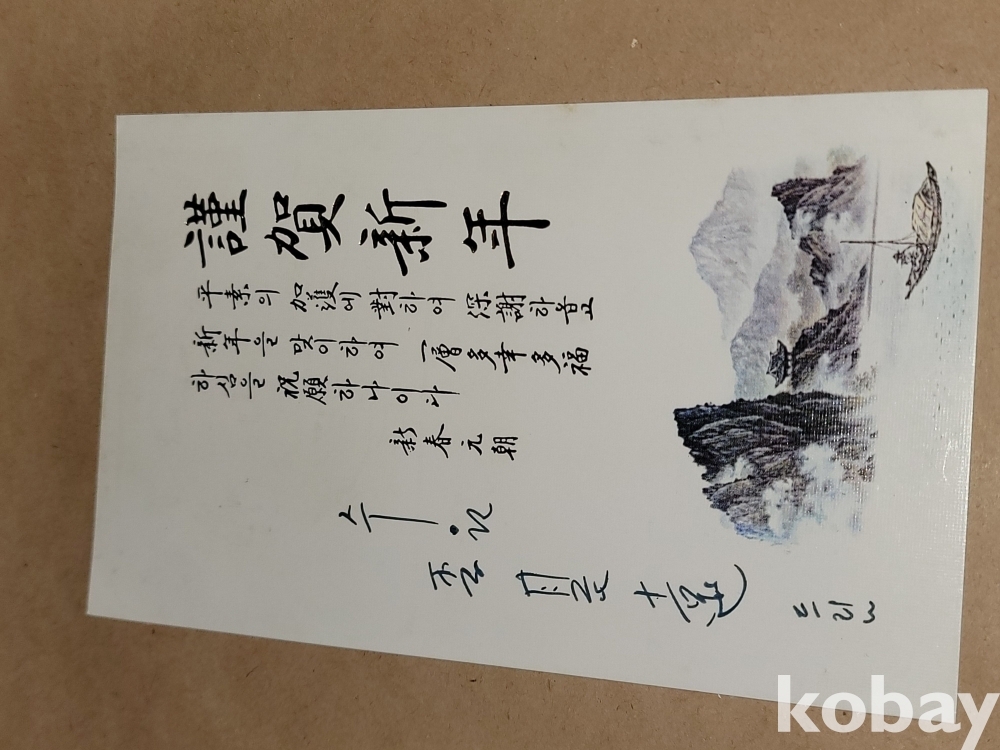 謹賀新年
平素의 加護에 對하여 深謝하옵고
新年을 맞이하여 一層 多幸多福
하심을 祝願하나이다
新春元朝
드림
kobay